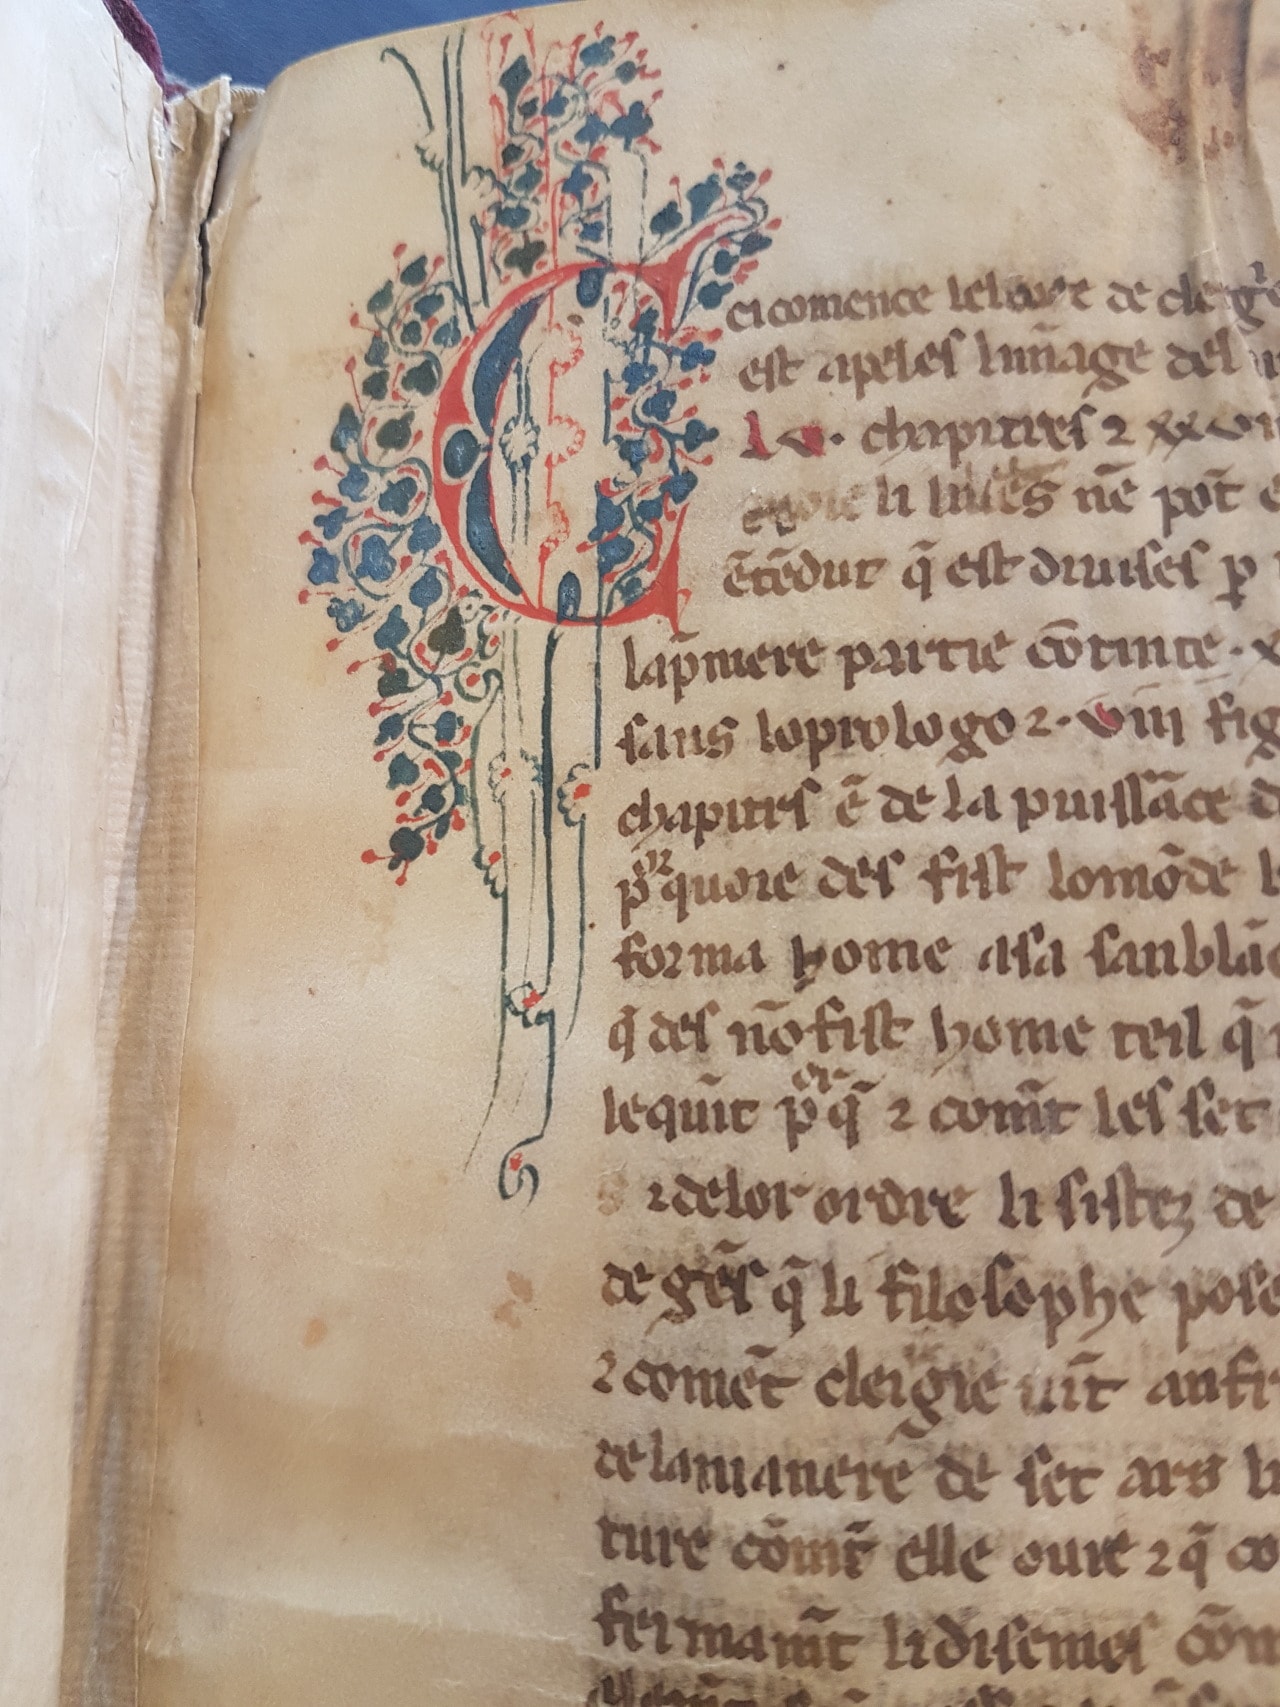 C ci comence le liure de clerg
est apeles límage del
lv. chapitres ⁊ xxvii
li liures nē pot̄
ētēdut q̄ est diuises ꝑ
la p̄miere partie cōtinte · x
sans lo prologo ⁊ · viii fig
chapitrs ē de la puissāce d
p̄orquoie des fist lo mōde l
forma home a sa sanblāc
q̄ des nō fist home teil q̄
le quīt p̄orq̄ ⁊ com̄t les set
⁊ de lor ordre li sistez de
de gēs q̄ li filosophe pose
⁊ comēt cleigie uīt anfr
de la manere de set ars li
ture cōmt̄ elle oure ⁊ q̄ co
fermam̄t li disemes cōm